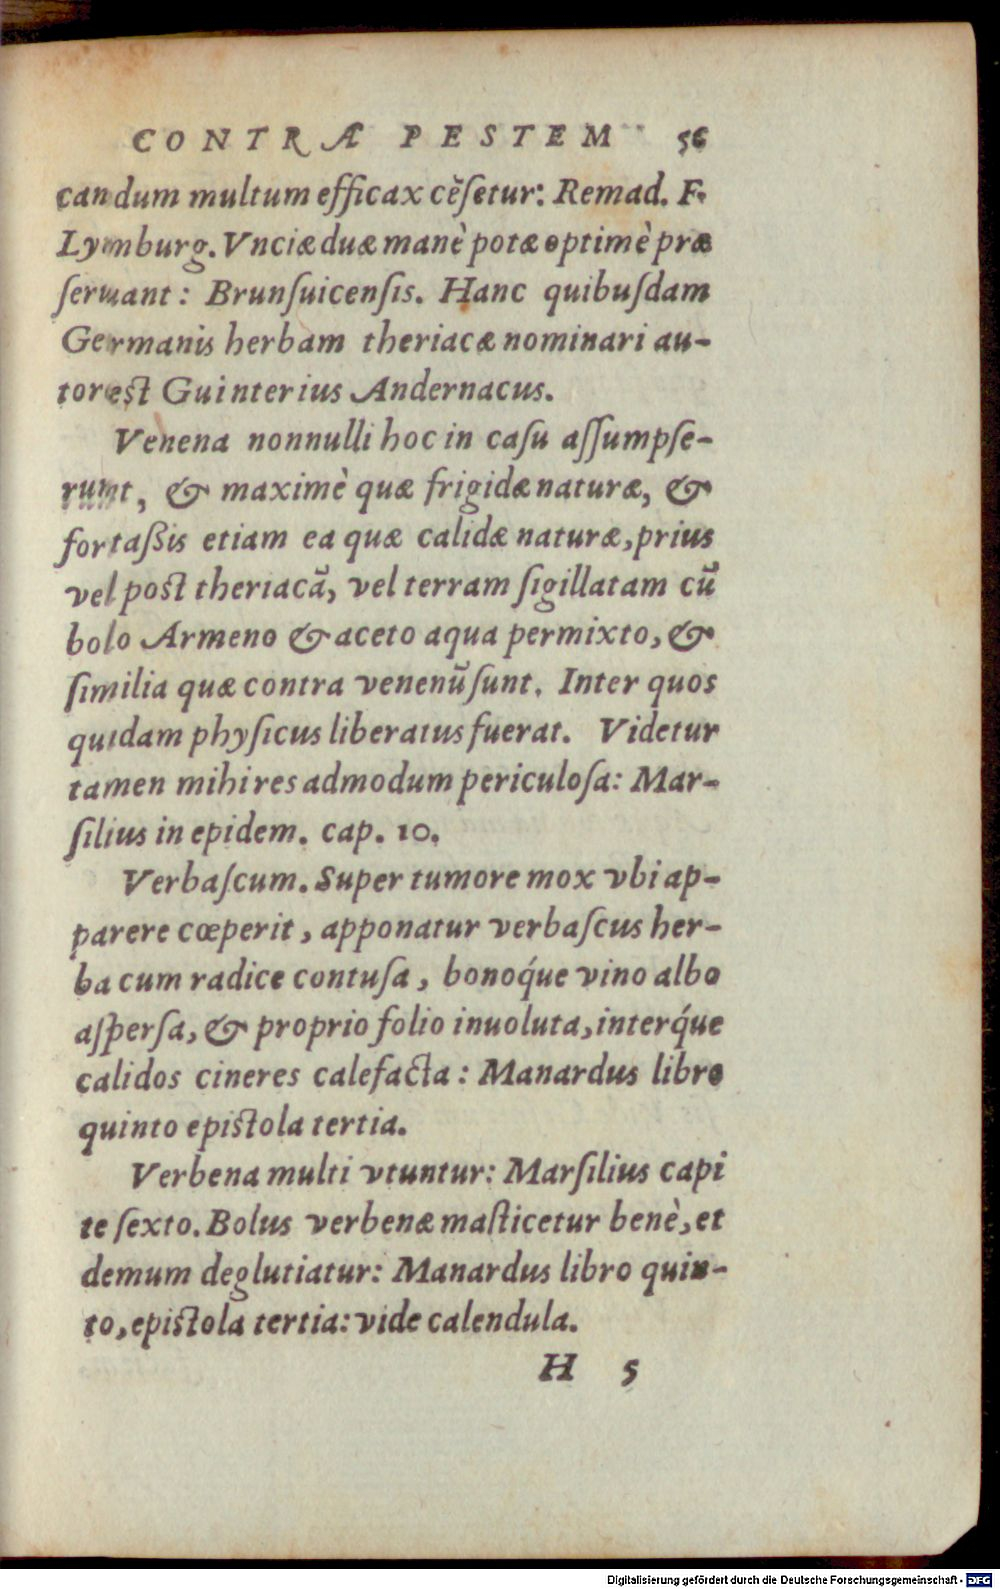 CONTRA PESTEM 56
candum multum efficax cẽſetur: Remad. F.
Lymburg. Vnciæ duæ manè potæ optimè præ
ſeruant: Brunſuicenſis. Hanc quibuſdam
Germanis herbam theriacæ nominari au-
tor est Guinterius Andernacus.
Venena nonnulli hoc in caſu aſſumpſe-
runt, & maximè quæ frigidæ naturæ, &
fortaßis etiam ea quæ calidæ naturæ, prius
vel post theriacã, vel terram ſigillatam cũ
bolo Armeno & aceto aqua permixto, &
ſimilia quæ contra venenũ ſunt. Inter quos
quidam phyſicus liberatus fuerat. Videtur
tamen mihi res admodum periculoſa: Mar-
ſilius in epidem. cap. 10.
Verbaſcum. Super tumore mox vbi ap-
parere cœperit, apponatur verbaſcus her-
ba cum radice contuſa, bonoq́ue vino albo
aſperſa, & proprio folio inuoluta, interq́ue
calidos cineres calefacta: Manardus libro
quinto epistola tertia.
Verbena multi vtuntur: Marſilius capi
te ſexto. Bolus verbenæ maſticetur benè, et
demum deglutiatur: Manardus libro quin-
to, epistola tertia: vide calendula.
H 5
Digitalisierung gefördert durch die Deutsche Forschungsgemeinschaft - DFG